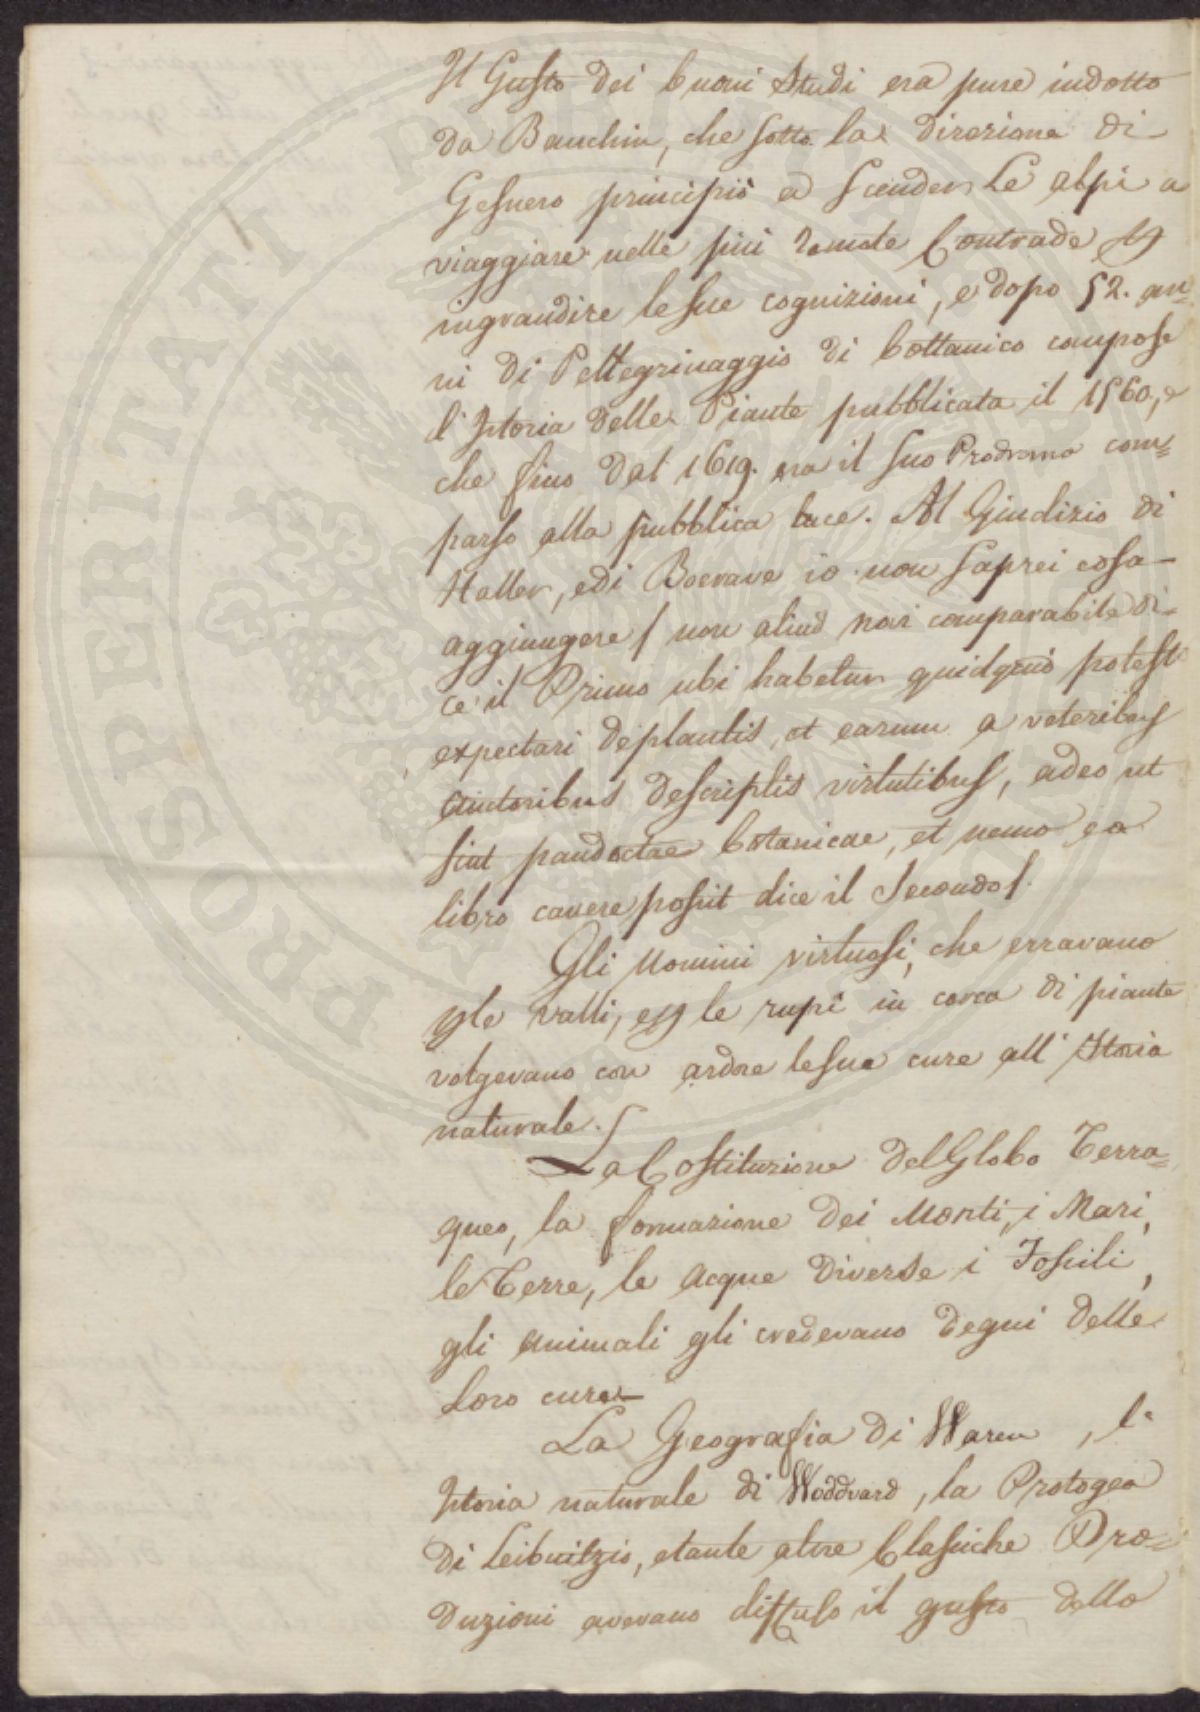 Il Gusto dei buoni Studi era pure indotto
da Bauchin, che sotto la direzione di
Gesnero principiò ad scender le alpi a
viaggiare nelle più remote Contrade per
ingrandire le sue cognizioni, e dopo 52. an=
ni di Pellegrinaggio di bottanico compose
l'Istoria delle Piante pubblicata il 1560, e
che fino dal 1619. era il suo Prodromo com=
parso alla pubblica luce. Al Giudizio di
Haller, e di Boerave io non saprei cosa
aggiungere / non aliud novi comparabile di=
ce il Primo ubi habetur quidquid potest
expectari de plantis, et earum a veteribus
auctoribus descriptis virtutibus, adeo ut
sint pandectae botanicae, et nemo ea
libro carere possit dice il Secondo /.
Gli Uomini virtuosi, che erravano
per le valli, e per le rupi in cerca di piante
volgevano con ardore le sue cure all' Istoria
naturale.
La Costituzione del Globo Terra=
queo, la formazione dei Monti, i Mari,
le Terre, le Acque diverse i Fossili,
gli animali gli credevano degni delle
loro cure
La Geografia di Waren, l'
Istoria naturale di Woddvard, la Protogea
di Leibnitzio, e tante altre Classiche Pro=
duzioni avevano diffuso il gusto della
PROSPERITATI PUBLICAE